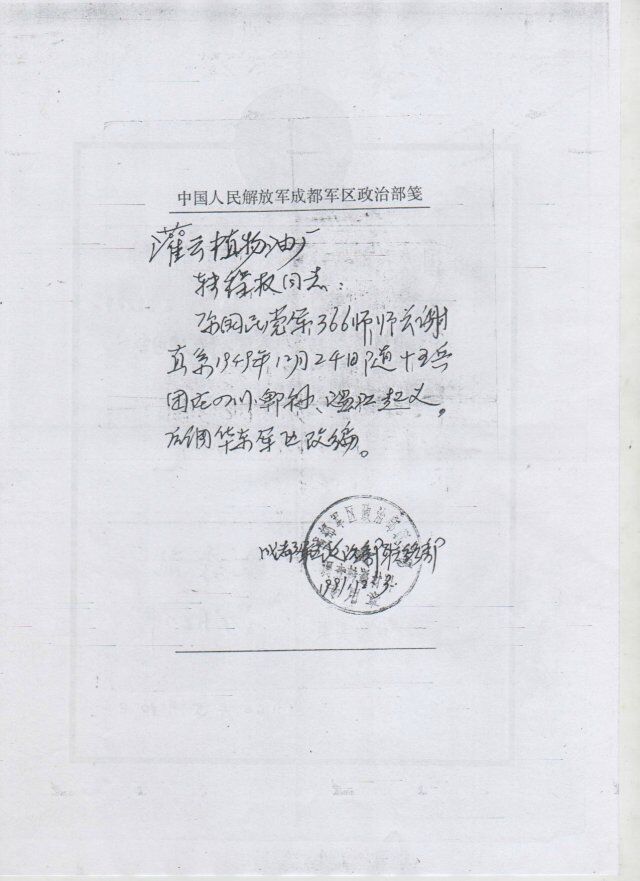 中国人民解放军成都军区政治部笺
灌云植物油厂
转程权同志:
原国民党军366师师长谢
直系1949年12月24日随十五兵
团在四川郫县、温江起义。
后调华东军区改编。
成都军区政治部联络部